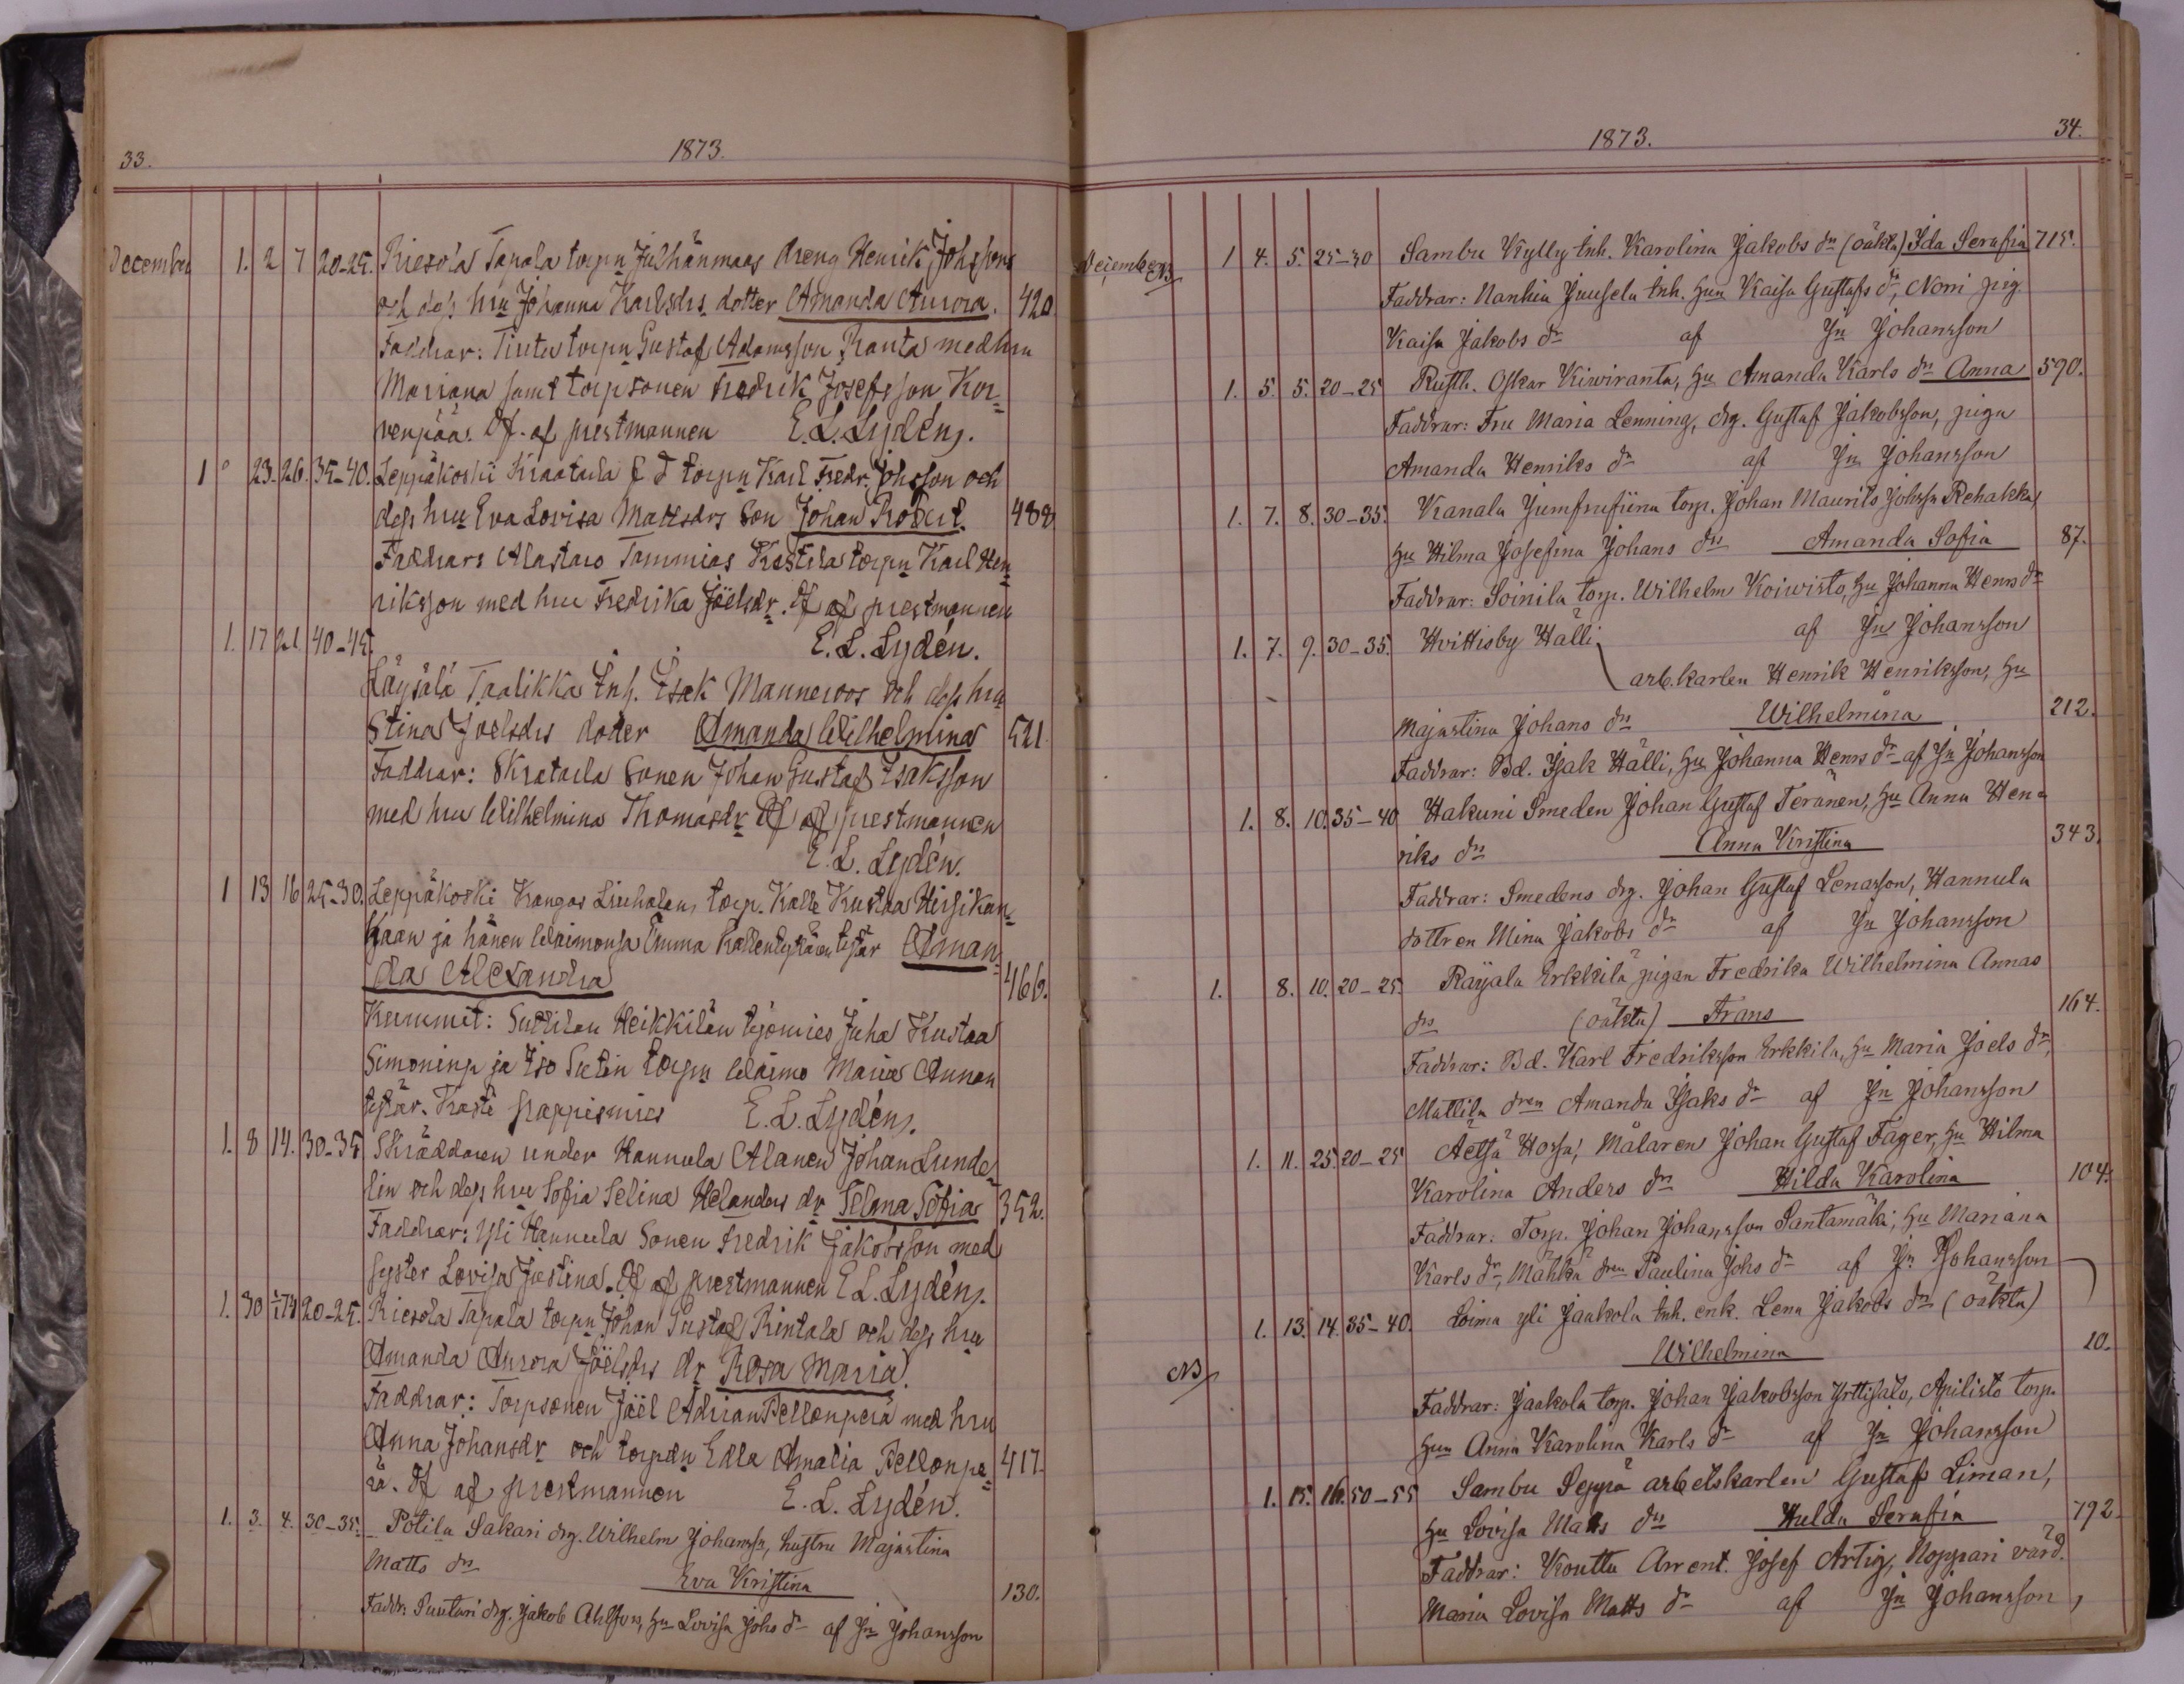 33.
1873.
December 1. 2 7 20-25. Riesola Tapala torpn Julhänmaas dreng Henrik Johssons
och dess hru Johanna Karlsdrs dotter Amanda Aurora. 420
Faddrar: torpn Gustaf Adamsson Ranta med hru
Mariana samt torpsonen Fredrik Josefsson Kor-
venpää. Df. af prestmannen E. L. Lydén.
1 23. 26. 35-40. Leppäkoski Kraatula f d torpn Karl Fredr. Johsson och
dess hru Eva Lovisa Mattsdrs son Johan Robert. 488
Faddrars Alastaro Tammias Kestila torpn Karl Hen-
riksson med hru Fredrika Joëlsdr. Df af prestmannen
1. 17 21 40-45. E. L. Lydén.
Räysälä Taalikka Inh. Isak Manneroos och dess hru
Stina Joelsdrs doter Amanda Wilhelmina 521.
Faddrar: Skratarla Sonen Johan Gustaf Isaksson
med hru Wilhelmina Thomasdr Df af prestmannen
E. L. Lydén.
1 13 16 25-30. Leppäkoski Kangas Liuhalan, torp. Kalle Kustaa Hirsikan-
kaan ja hänen waimonsa Emma Kallentyttären tytär Aman-
da Alexandra 466.
Kummit: Suttilan Heikkilän työmies Juha Kustaa
Simoninp ja Iso Sutin torpn waimo Maria Annan
tytär. Kasti kappismies E. L. Lydén.
1. 8 14. 30-35 Skräddaren under Hannula Alanen Johan Lunde-
lin och dess hru Sofia Selina Helanders dr Selma Sofia 352.
Faddrar: Yli Hannula Sonen Fredrik Jakobsson med
syster Lovisa Justina. Df af prestmannen E. L. Lydén.
1. 30 20-25. Riesola Tapala torpn Johan Gustaf Rintala och dess hru
Amanda Aurora Joëlsdrs dr Rosa Maria.
Faddrar: Torpsonen Joël Adrian Pellonperä med hru
Anna Johansdr och torpdn Edla Amalia Pellonpe- 417.
rä. Df af prestmannen E. L. Lydén.
1. 3. 4. 30-35. Potila Sakari drg. Wilhelm Johanssn, hustru Majastina
Matts drs Eva Kristina 130.
Faddr. Suutari drg. Jakob Ahlfors, hu Lovisa Johs dr af Jn Johansson
1873.
34.
December NB 1 4. 5. 25-30 Sambu Kylly Inh. Karolina Jakobs drs (oäkta) Ida Serafia 715.
Faddrar: Nanhia Juusela Inh. hun Kaisa Gustafs dr, Norri pig.
Kaisa Jakobs dr af Jn Johansson
1. 5. 5. 20-25 Rusth. Oskar Kiwiranta, hu Amanda Karls drs Anna 590.
Faddrar: Fru Maria Lenning, drg. Gustaf Jakobsson, piga
Amanda Henriks dr af Jn Johansson
1. 7. 8. 30-35. Kanala Jumfrufiina torp. Johan Maurits Johssn Rehakka,
hu Hilma Josefina Johans drs Amanda Sofia 87.
Faddrar: Soinila torp. Wilhelm Koiwisto, hu Johanna Henrs dr
af Jn Johansson
1. 7. 9. 30-35. Hvittisby Hälli
arb.karlen Henrik Henriksson, hu
Majastina Johans drs Wilhelmina 212.
Faddrar: Bd. Isak Hälli, hu Johanna Henrs dr af Jn Johansson
1. 8. 10. 35-40 Hakuni Smeden Johan Gustaf Teränen, hu Anna Hen-
riks drs Anna Kristina 343.
Faddrar: Smedens drg. Johan Gustaf Lenasson, Hannula
dottren Mina Jakobs dr af Jn Johansson
1. 8. 10. 20-25. Raijala Erkkilä pigan Fredrika Wilhelmina Annas
drs (oäkta) Frans 164.
Faddrar: Bd. Karl Fredriksson Erkkila, hu Maria Joels dr,
Mattila dren Amanda Isaks dr af Jn Johansson
1. 11. 25. 20-25 Äetsä Horsa, Målaren Johan Gustaf Fager, hu Hilma
Karolina Anders drs Hilda Karolina 104.
Faddrar: Torp. Johan Johansson Santamäki, hu Mariana
Karls dr, Mahka dren Paulina Johs dr af Jn Johansson
1. 13. 14. 35-40. Loima yli Jaakola Inh. enk. Lena Jakobs drs (oäkta)
NB Wilhelmina 10.
Faddrar: Jaakola torp. Johan Jakobsson Yrttisalo, Apilisto torp.
hun Anna Karolina Karls dr af Jn Johansson
1. 15. 16. 50-55 Sambu Seppä arbetskarlen Gustaf Liman,
hu Lovisa Matts drs Hulda Serafia 792.
Faddrar: Kouttu Arrent. Josef Artig, Noppari värd.
Maria Lovisa Matts dr af Jn Johansson,